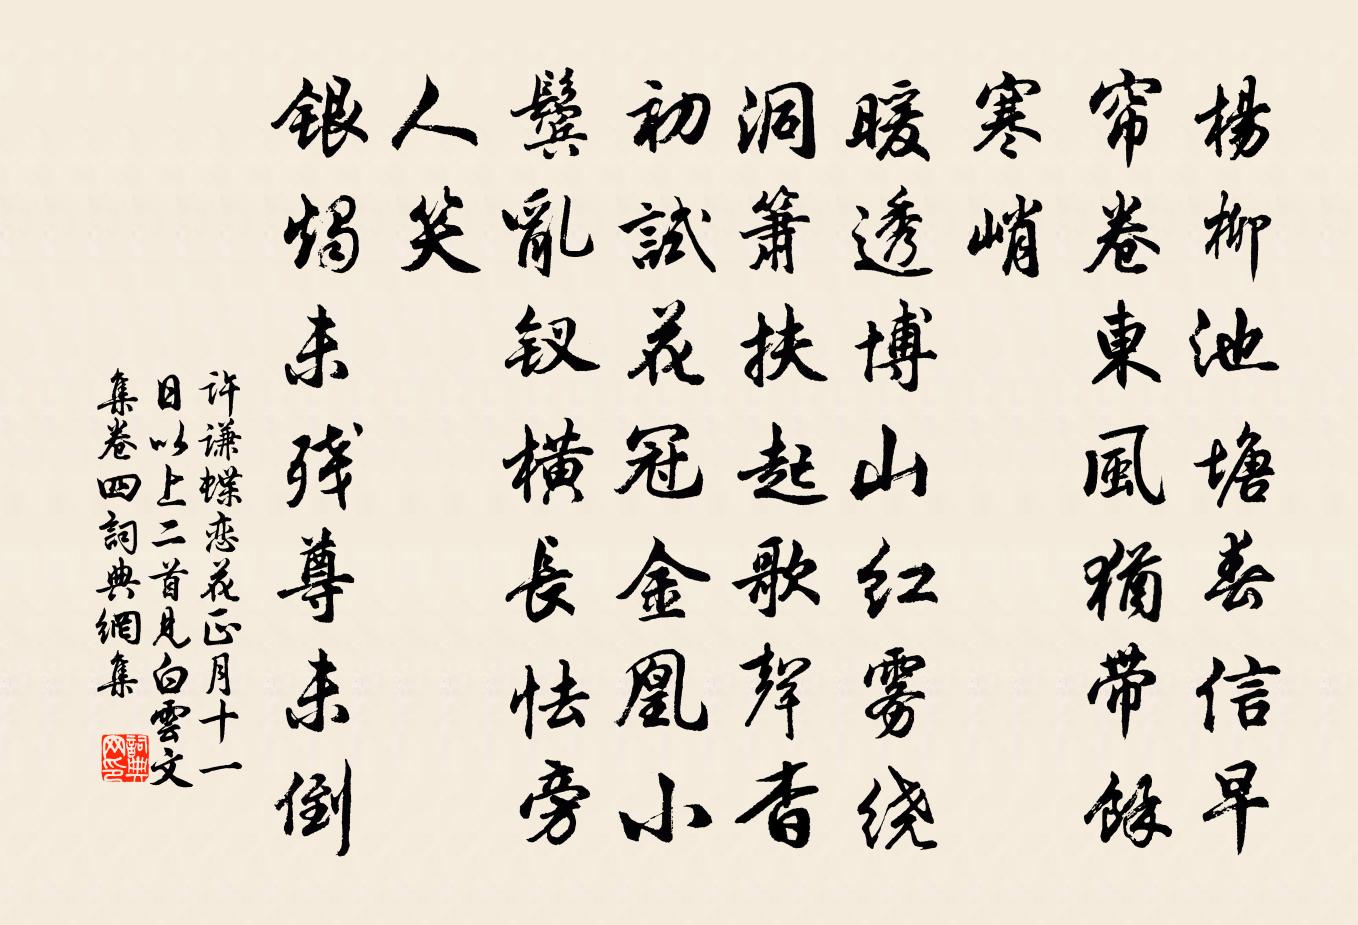 楊柳池塘春信早
帘卷東風猶带餘
寒峭
暖透博山红雾绕
洞箫扶起歌聲杳
初試花冠金凰小
鬓亂钗横長怯旁
人笑
銀烛未残尊未倒
許谦蝶恋花正月十一
日以上二首見白雲文
集卷四詞典網集
詞典
网印